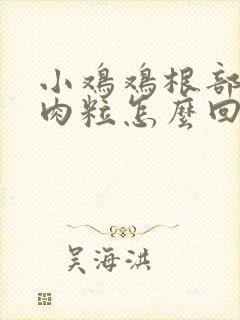 小鸡鸡根部
肉粒怎麼回
吴海洪